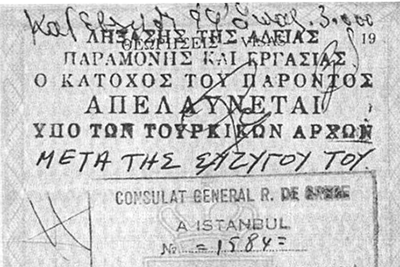 3.000
ΛΗΞΑΣΗΣ ΤΗΣ ΑΔΕΙΑΣ
ΘΕΩΡΗΣΕΙΣ VISAS 19
ΠΑΡΑΜΟΝΗΣ ΚΑΙ ΕΡΓΑΣΙΑΣ
Ο ΚΑΤΟΧΟΣ ΤΟΥ ΠΑΡΟΝΤΟΣ
ΑΠΕΛΑΥΝΕΤΑΙ
ΥΠΟ ΤΩΝ ΤΟΥΡΚΙΚΩΝ ΑΡΧΩΝ
ΜΕΤΑ ΤΗΣ ΣΥΖΥΓΟΥ ΤΟΥ.
CONSULAT GENERAL R. DE
A ISTANBUL
No =1584=